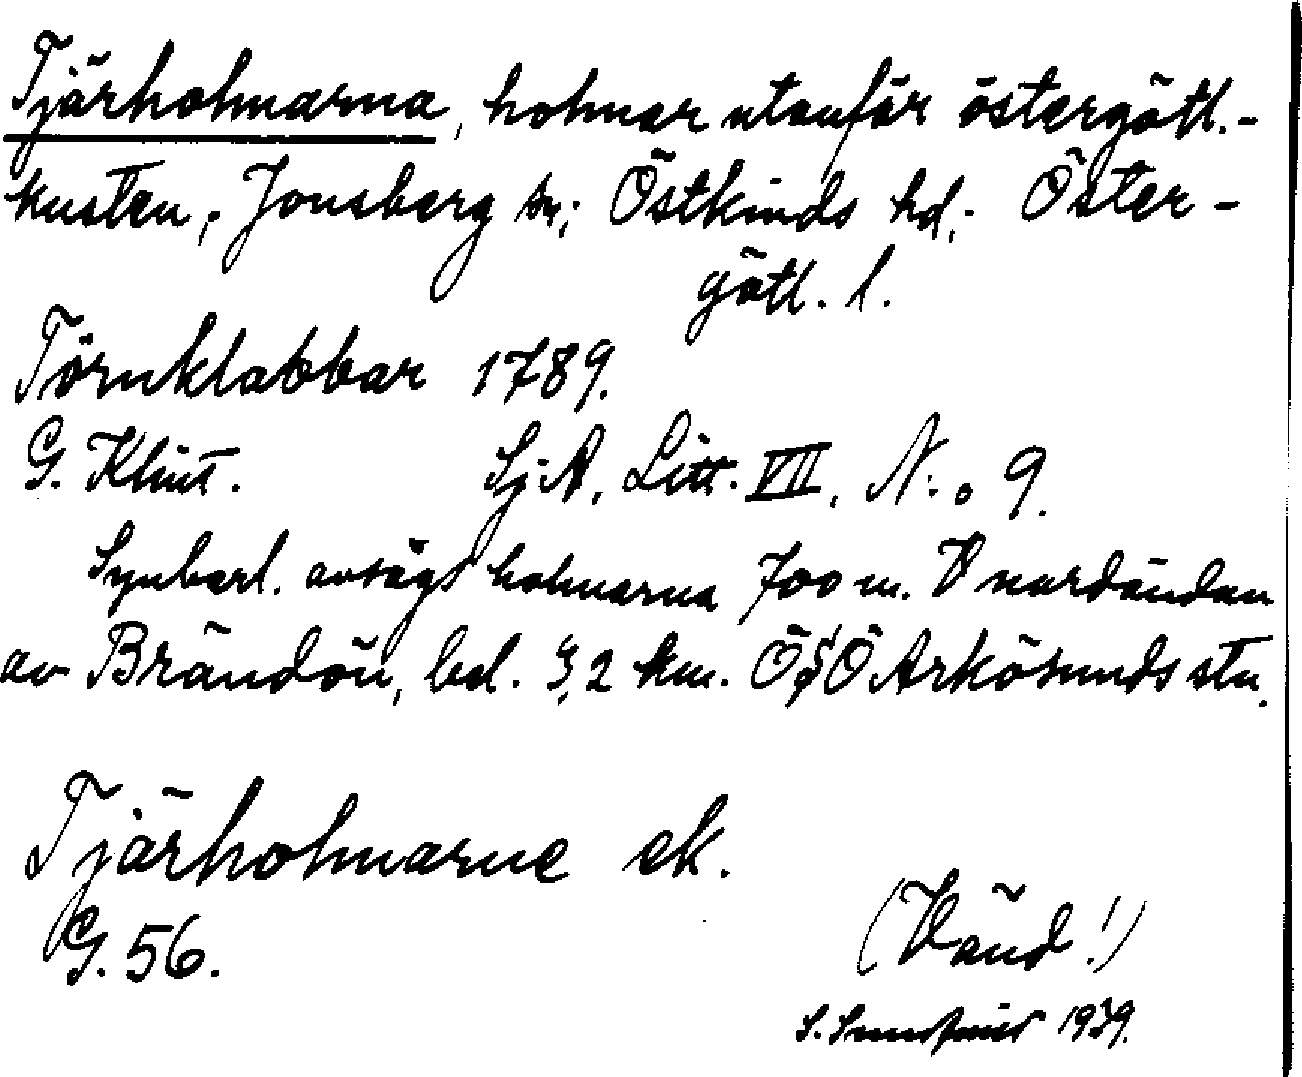 Tjärholmarna, holmar utanför östergötl.-
kusten, Jonsberg sn; Östkinds hd; Öster-
götl. l.
Törnklabbar 1789.
G. Klint. Sj.A, Litt. VII, N:o 9.
Synbarl. avsågs holmarna 700 m. V nordändan
av Brändön, bel. 3,2 km. ÖSÖ Arkösunds stn.
Tjärholmarne ek.
G. 56.
(Vänd!)
S. 1939.